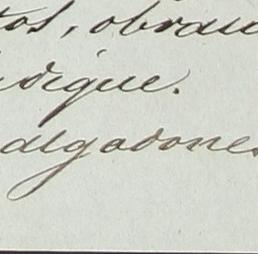 tos, obran
digue.
algadones